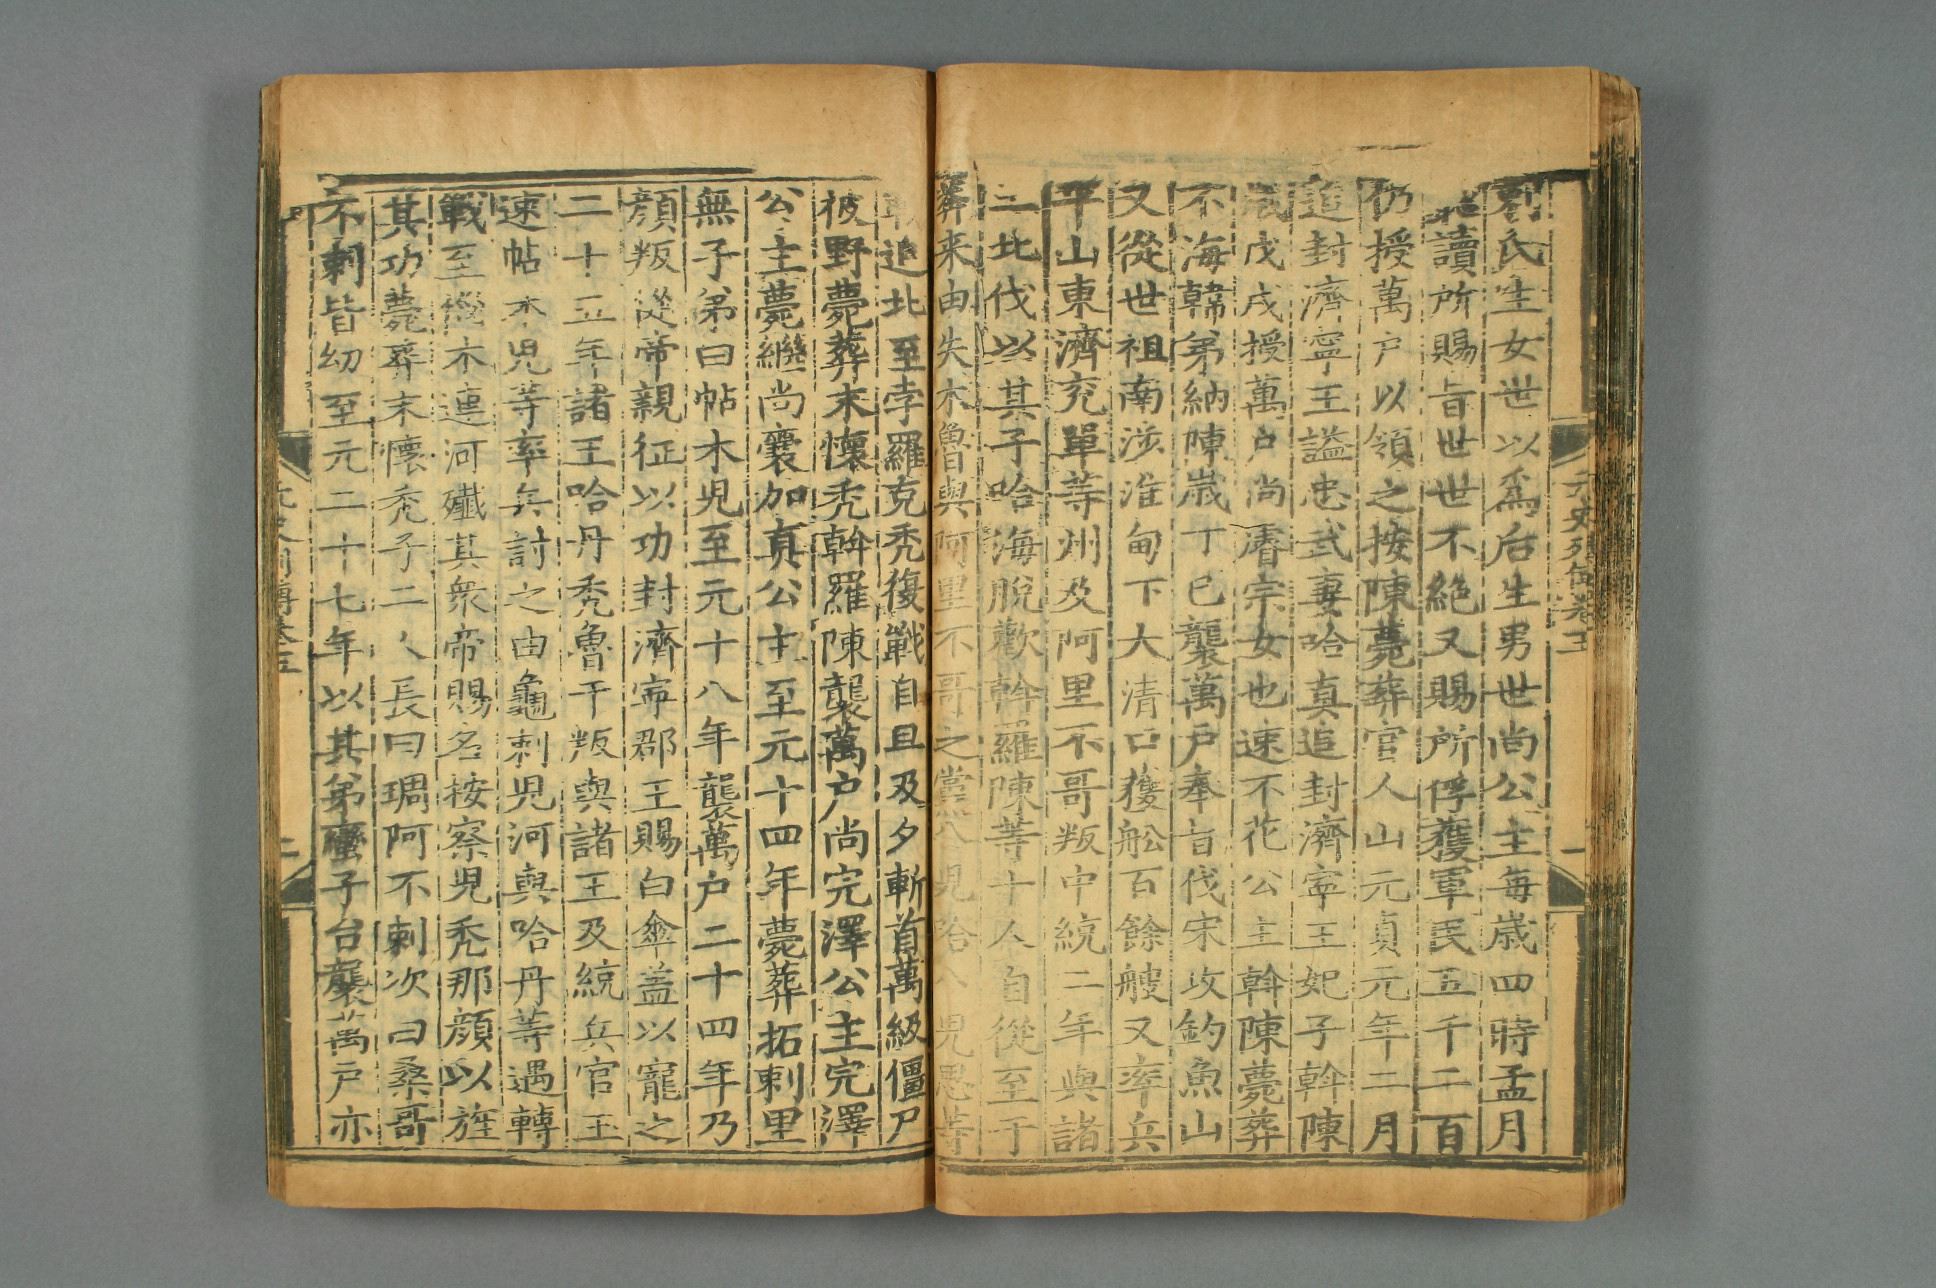 氏生女世以為后生男世尚公主每歲四時孟月
讀所賜旨世世不絕又賜所俘獲軍民五千二百
仍授萬戶以領之按陳薨葬官人山元貞元年二月
追封濟寧王謚忠武妻哈真追封濟寧王妃子斡陳
歲戊戌授萬戶尚睿宗女也速不花公主斡陳薨葬
不海韓弟納陳歲丁巳襲萬戶奉旨伐宋攻釣魚山
又從世祖南涉淮甸下大清口獲舩百餘艘又率兵
平山東濟兖單等州及阿里不哥叛中統二年與諸
北伐以其子哈海脫歡斡羅陳等十人自從至于
葬來由失木魯與阿里不哥之黨八兒哈八兒思等
追北至孛羅克禿復戰自旦及夕斬首萬級僵尸
被野薨葬末懷禿斡羅陳襲萬戶尚完澤公主完澤
公主薨繼尚囊加真公主至元十四年薨葬拓剌里
無子弟曰帖木児至元十八年襲萬戶二十四年乃
顏叛從帝親征以功封濟寧郡王賜白傘盖以寵之
二十五年諸王哈丹禿魯干叛與諸王及統兵官玉
速帖木児等率兵討之由龜剌児河與哈丹等遇轉
戰至惱木連河殲其衆帝賜名按察児禿那顏以旌
其功薨葬末懷禿子二人長曰琱阿不剌次曰桑哥
不剌皆幼至元二十七年以其弟蠻子台襲萬戶亦
元史列傳卷五
二